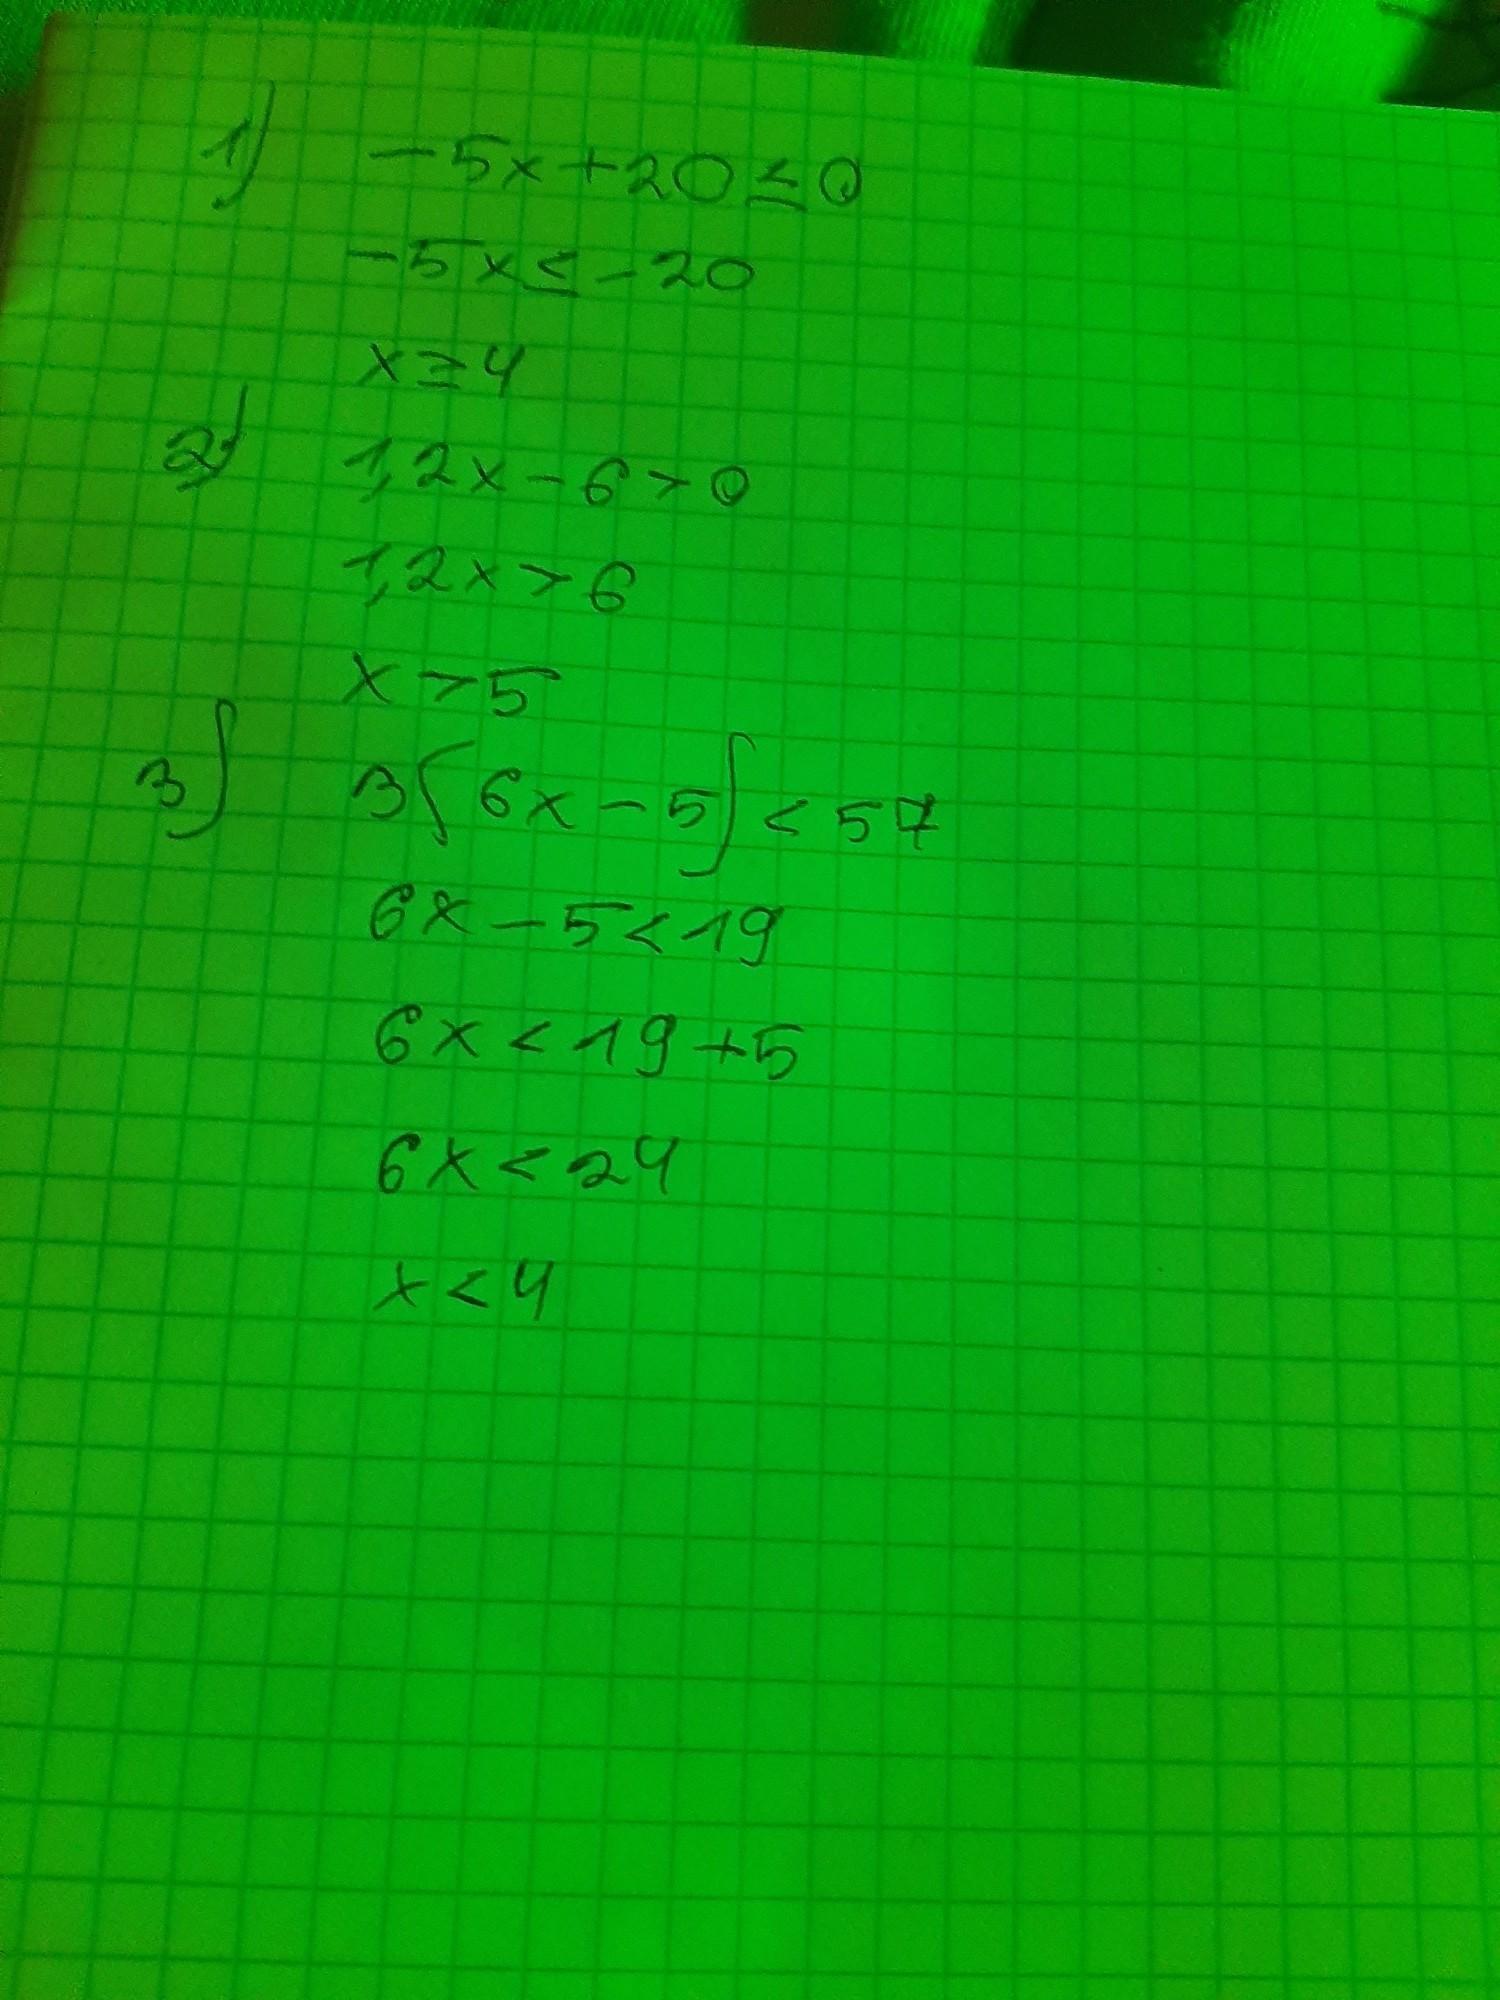 1) -5x+20≤0
-5x≤-20
x≥4
2) 1,2x-6>0
1,2x>6
x>5
3) 3(6x-5)<57
6x-5<19
6x<19+5
6x<24
x<4